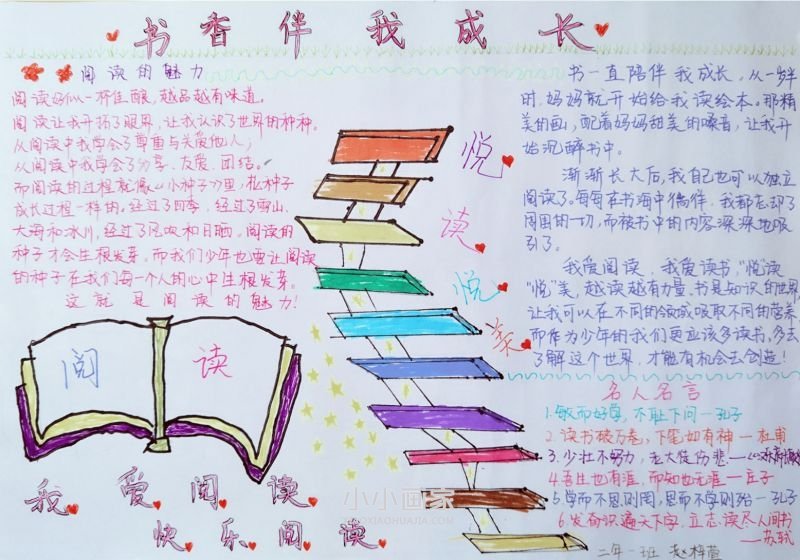 书香伴我成长
阅读的魅力
阅读好似一杯佳酿,越品越有味道。
阅读让我开拓了眼界,让我认识了世界的种种。
从阅读中我学会了尊重与关爱他人;
从阅读中我学会了分享、友爱、团结。
而阅读的过程就像《小种子》里,松种子
成长过程一样的。经过了四季,经过了雪山、
大海和冰川,经过了风吹和日晒。阅读的
种子才会生根发芽。而我们少年也要让阅读
的种子在我们每一个人的心中生根发芽。
这就是阅读的魅力!
阅 读
我 爱 阅 读
快乐阅读
悦
读
悦
美
书一直陪伴我成长,从一岁半
时,妈妈就开始给我读绘本。那精
美的画,配着妈妈甜美的嗓音,让我开
始沉醉书中。
渐渐长大后,我自己也可以独立
阅读了。每每在书海中徜徉,我都忘却了
周围的一切,而被书中的内容深深地吸
引了。
我爱阅读,我爱读书,"悦"读
"悦"美,越读越有力量。书是知识的世界
让我可以在不同的领域吸取不同的营养
而作为少年的我们更应该多读书,多去
了解这个世界,才能有机会去创造!
名人名言
1.敏而好学,不耻下问—孔子
2.读书破万卷,下笔如有神—杜甫
3.少壮不努力,老大徒伤悲—《汉乐府
4.吾生也有涯,而知也无涯—庄子
5.学而不思则罔,思而不学则殆—孔子
6.发奋识遍天下字,立志读尽人间书
—苏轼
二年一班
小小画家
XIAOXIAOHUAJIA.COM